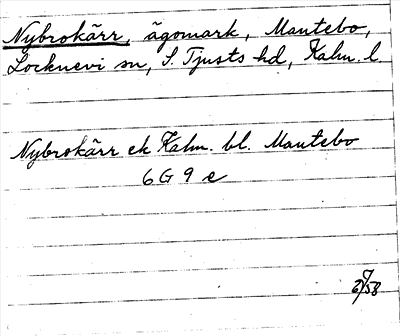 Nybrokärr, ägomark, Mantebo,
Locknevi sn, S. Tjusts hd, Kalm. l.
Nybrokärr ek Kalm. bl. Mantebo
6 G 9 e